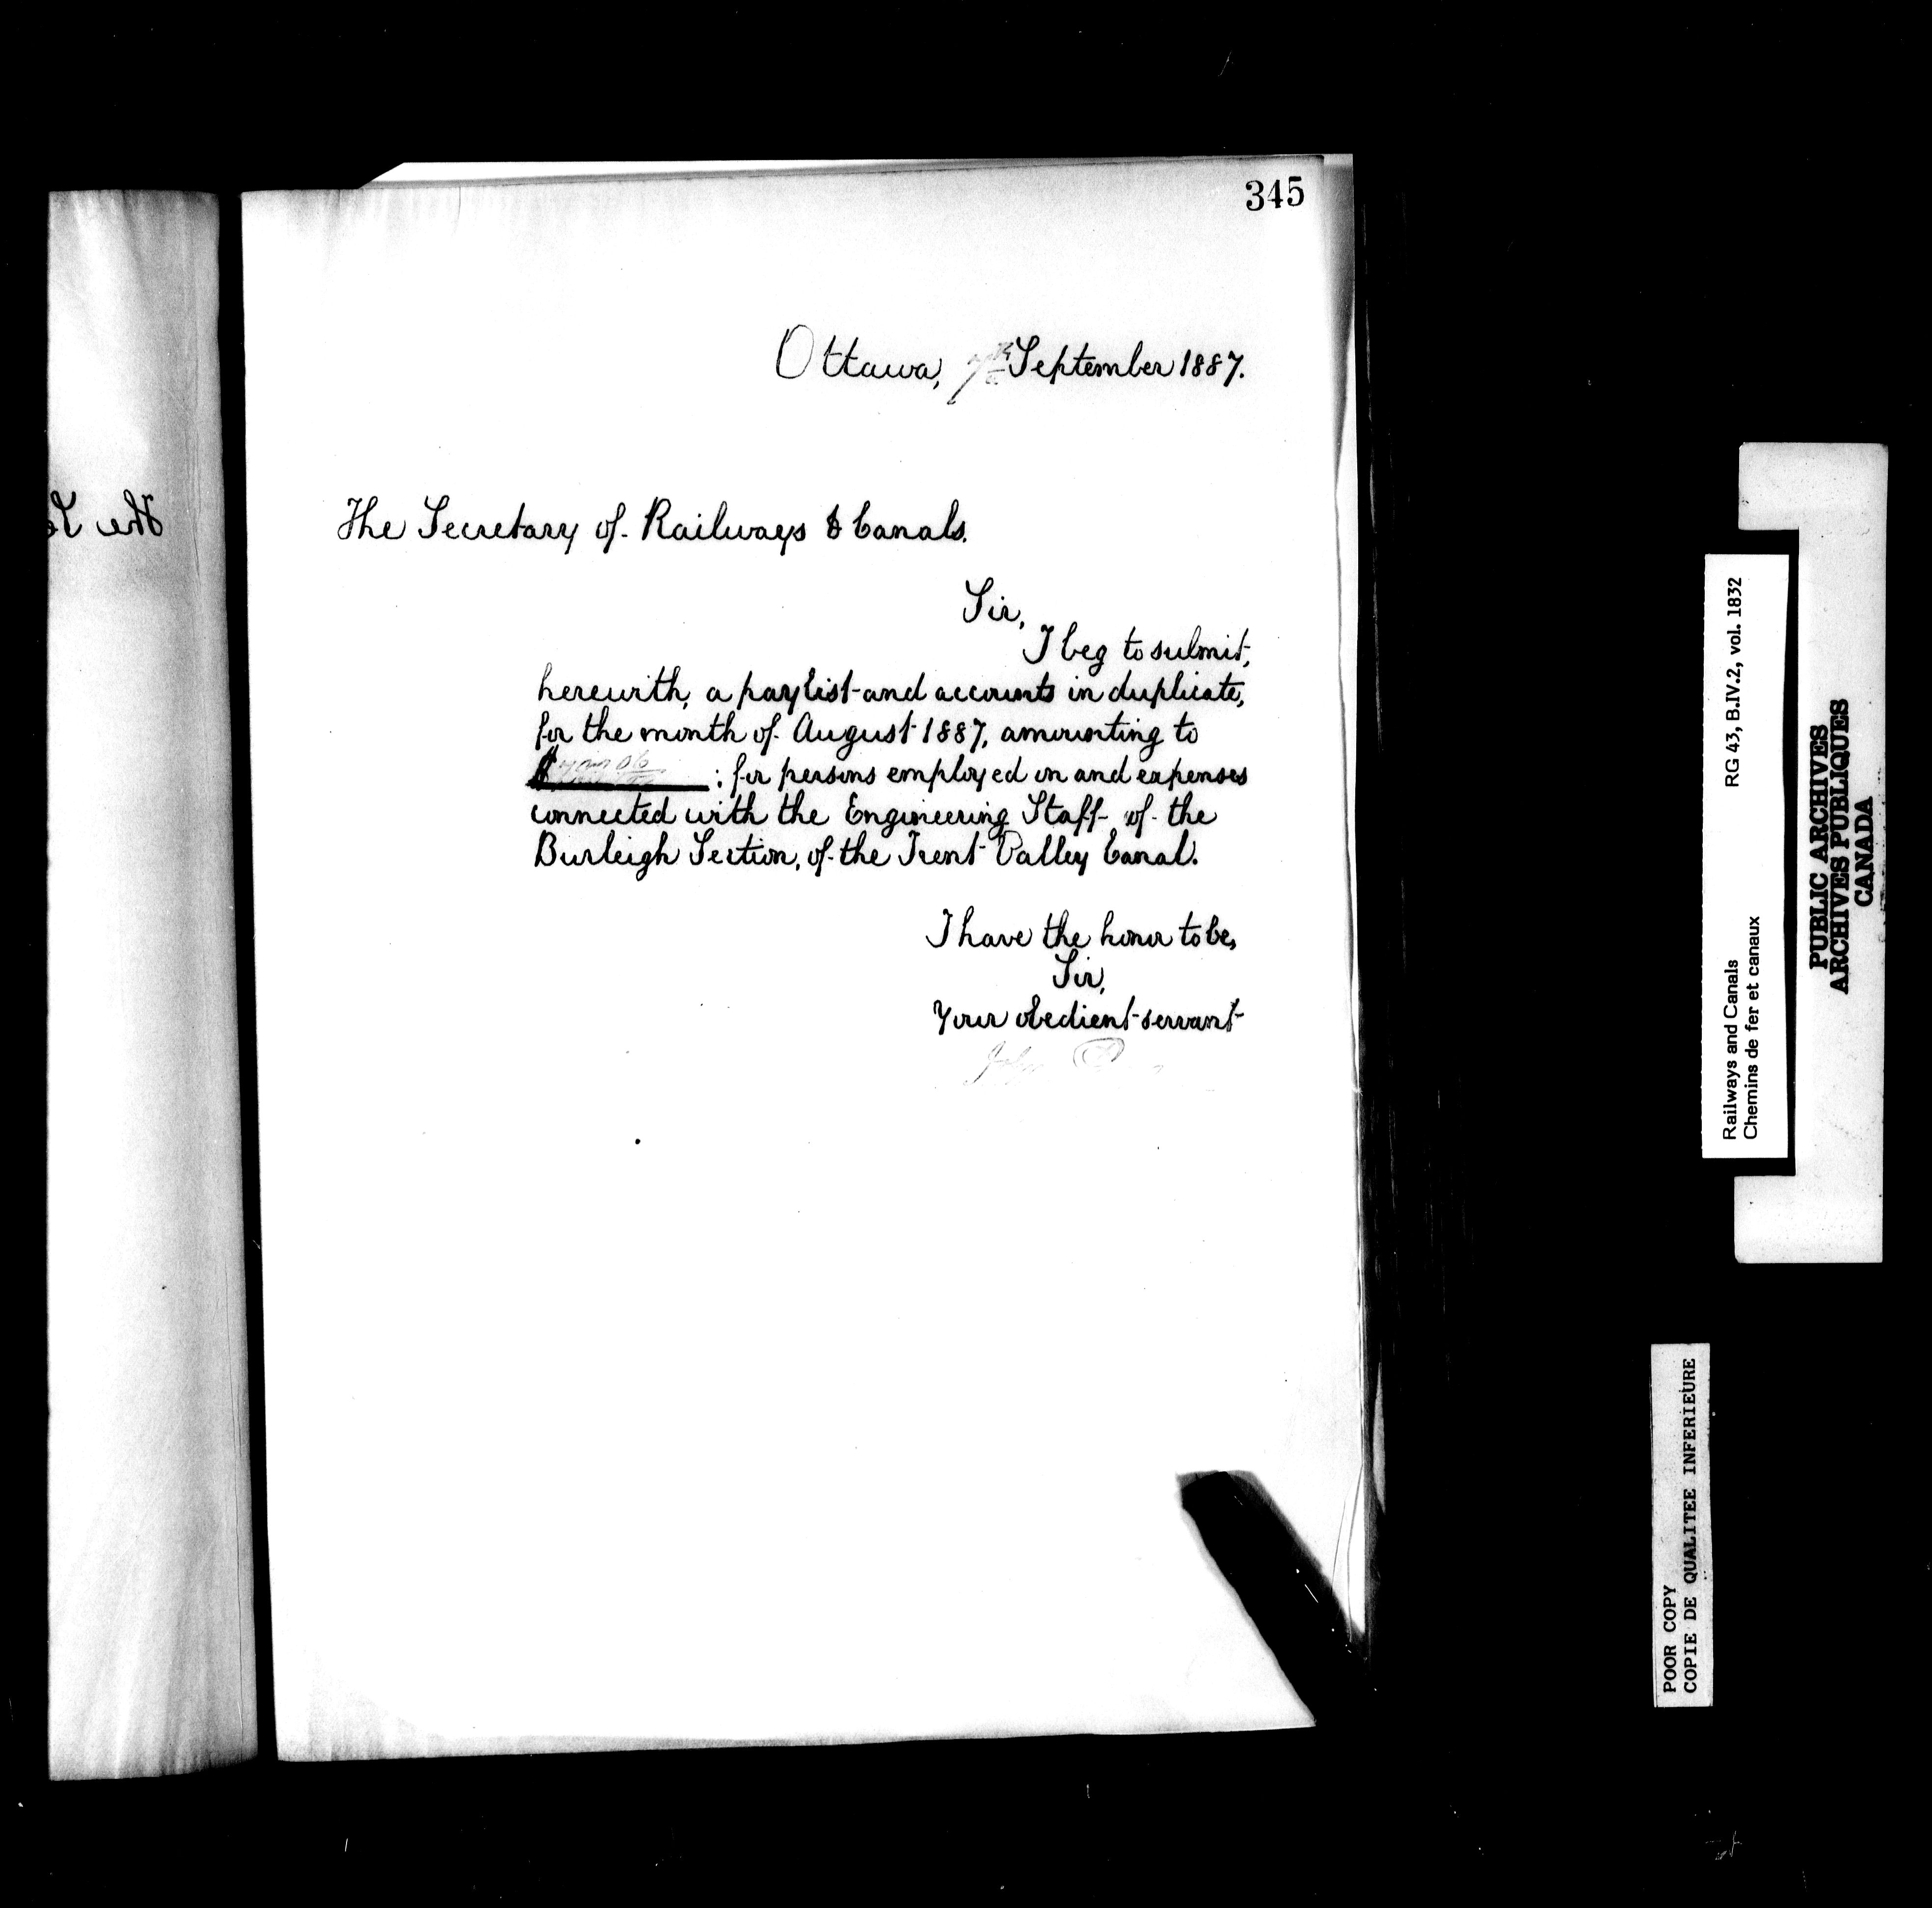 345
Ottawa, 7th September 1887.
The Secretary of Railways & Canals.
Sir,
I beg to submit,
herewith, a paylist and accounts in duplicate,
for the month of August 1887, amounting to
$ : for persons employed on and expenses
connected with the Engineering Staff of the
Burleigh Section, of the Trent Valley Canal.
I have the honor to be,
Sir,
Your obedient servant
John
Railways and Canals RG 43, B.IV.2, vol. 1832
Chemins de fer et canaux
PUBLIC ARCHIVES
ARCHIVES PUBLIQUES
CANADA
POOR COPY
COPIE DE QUALITEE INFERIEURE